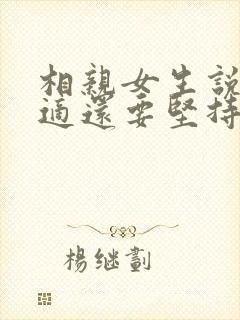 相親女生說
適還要堅持
楊継劃